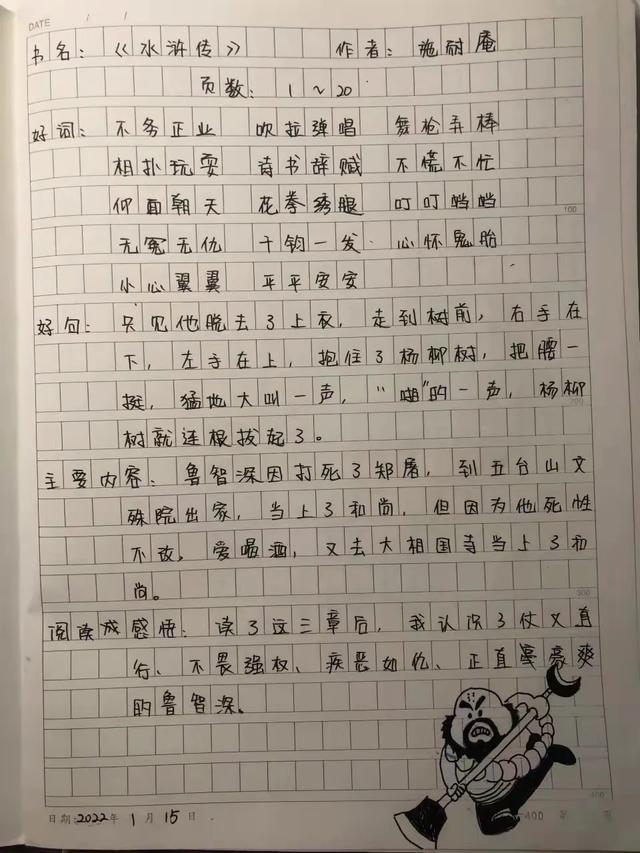 DATE / /
书名:《水浒传》 作者:施耐庵
页数:1~20
好词:不务正业 吹拉弹唱 舞枪弄棒
相扑玩耍 诗书辞赋 不慌不忙
仰面朝天 花拳绣腿 叮叮当当
100
无冤无仇 千钧一发 心怀鬼胎
小心翼翼 平平安安
好句:只见他脱去了上衣,走到树前,右手在
下,左手在上,抱住了杨柳树,把腰一
挺,猛地大叫一声,“啪”的一声,杨柳
200
树就连根拔起了。
主要内容:鲁智深因打死了郑屠,到五台山文
殊院出家,当上了和尚,但因为他死性
不改,爱喝酒,又去大相国寺当上了和
尚。
300
阅读感悟:读了这三章后,我认识了仗义直
行、不畏强权、疾恶如仇、正直豪爽
的鲁智深。
400
日期:2022年1月15日
400 第 页